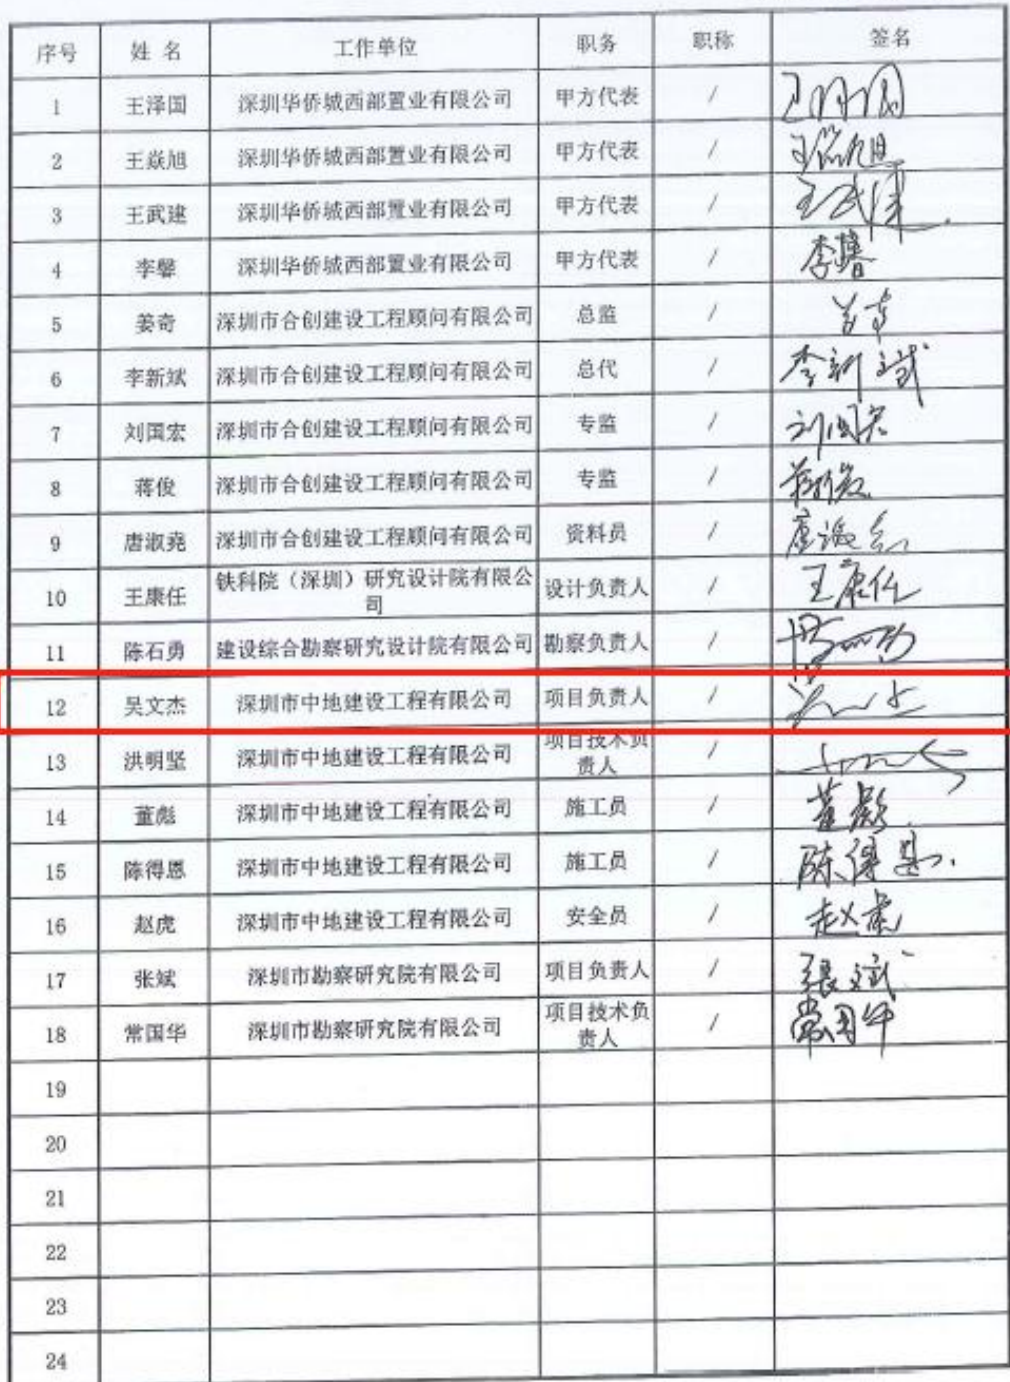 序号 姓 名 工作单位 职务 职称 签名
1 王泽国 深圳华侨城西部置业有限公司 甲方代表 /
2 王焱旭 深圳华侨城西部置业有限公司 甲方代表 /
3 王武建 深圳华侨城西部置业有限公司 甲方代表 / 王武建
4 李馨 深圳华侨城西部置业有限公司 甲方代表 / 李馨
5 姜奇 深圳市合创建设工程顾问有限公司 总监 / 姜奇
6 李新斌 深圳市合创建设工程顾问有限公司 总代 / 李新斌
7 刘国宏 深圳市合创建设工程顾问有限公司 专监 / 刘国宏
8 蒋俊 深圳市合创建设工程顾问有限公司 专监 / 蒋俊
9 唐淑尧 深圳市合创建设工程顾问有限公司 资料员 /
10 王康任 铁科院（深圳）研究设计院有限公
司 设计负责人 / 王康任
11 陈石勇 建设综合勘察研究设计院有限公司 勘察负责人 /
12 吴文杰 深圳市中地建设工程有限公司 项目负责人 /
13 洪明坚 深圳市中地建设工程有限公司 项目技术负
责人 /
14 董彪 深圳市中地建设工程有限公司 施工员 / 董彪
15 陈得恩 深圳市中地建设工程有限公司 施工员 / 陈得恩
16 赵虎 深圳市中地建设工程有限公司 安全员 / 赵虎
17 张斌 深圳市勘察研究院有限公司 项目负责人 / 张斌
18 常国华 深圳市勘察研究院有限公司 项目技术负
责人 / 常国华
19
20
21
22
23
24